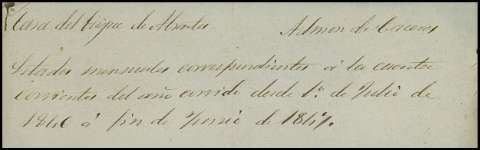 Casa del Duque de Abrantes Admon de Caceres
Estados mensuales correspondientes á la cuentas
corrientes del año corrido desde 1º de Julio de
1846 á fin de Junio de 1847.